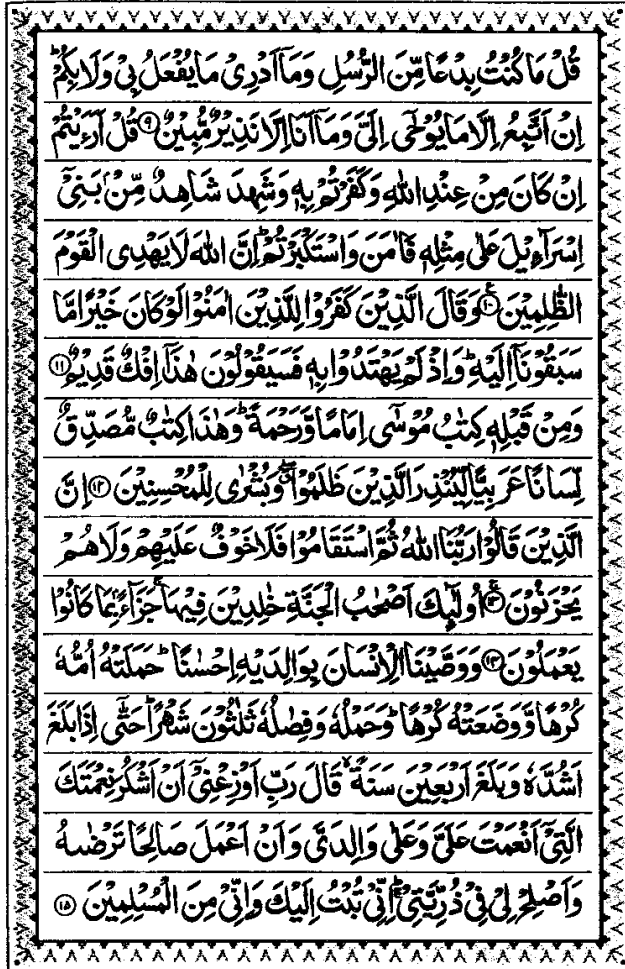 قُلْ مَا كُنْتُ بِدْعًا مِّنَ الرُّسُلِ وَمَآ اَدْرِىْ مَا يُفْعَلُ بِىْ وَلَا بِكُمْ ؕ
اِنْ اَتَّبِعُ اِلَّا مَا يُوْحٰٓى اِلَىَّ وَمَآ اَنَا اِلَّا نَذِيْرٌ مُّبِيْنٌ ۹ قُلْ اَرَءَيْتُمْ
اِنْ كَانَ مِنْ عِنْدِ اللّٰهِ وَكَفَرْتُمْ بِهٖ وَشَهِدَ شَاهِدٌ مِّنْۢ بَنِىْٓ
اِسْرَآءِيْلَ عَلٰى مِثْلِهٖ فَاٰمَنَ وَاسْتَكْبَرْتُمْ ؕ اِنَّ اللّٰهَ لَا يَهْدِى الْقَوْمَ
الظّٰلِمِيْنَ ۱۰ ع وَقَالَ الَّذِيْنَ كَفَرُوْا لِلَّذِيْنَ اٰمَنُوْا لَوْ كَانَ خَيْرًا مَّا
سَبَقُوْنَآ اِلَيْهِ ؕ وَاِذْ لَمْ يَهْتَدُوْا بِهٖ فَسَيَقُوْلُوْنَ هٰذَآ اِفْكٌ قَدِيْمٌ ۱۱
وَمِنْ قَبْلِهٖ كِتٰبُ مُوْسٰٓى اِمَامًا وَّرَحْمَةً ؕ وَهٰذَا كِتٰبٌ مُّصَدِّقٌ
لِّسَانًا عَرَبِيًّا لِّيُنْذِرَ الَّذِيْنَ ظَلَمُوْا ۖ وَبُشْرٰى لِلْمُحْسِنِيْنَ ۱۲ اِنَّ
الَّذِيْنَ قَالُوْا رَبُّنَا اللّٰهُ ثُمَّ اسْتَقَامُوْا فَلَا خَوْفٌ عَلَيْهِمْ وَلَا هُمْ
يَحْزَنُوْنَ ۱۳ اُولٰٓئِكَ اَصْحٰبُ الْجَنَّةِ خٰلِدِيْنَ فِيْهَا ۚ جَزَآءًۢ بِمَا كَانُوْا
يَعْمَلُوْنَ ۱۴ وَوَصَّيْنَا الْاِنْسَانَ بِوَالِدَيْهِ اِحْسٰنًا ؕ حَمَلَتْهُ اُمُّهٗ
كُرْهًا وَّوَضَعَتْهُ كُرْهًا ؕ وَحَمْلُهٗ وَفِصٰلُهٗ ثَلٰثُوْنَ شَهْرًا ؕ حَتّٰٓى اِذَا بَلَغَ
اَشُدَّهٗ وَبَلَغَ اَرْبَعِيْنَ سَنَةً ۙ قَالَ رَبِّ اَوْزِعْنِىْٓ اَنْ اَشْكُرَ نِعْمَتَكَ
الَّتِىْٓ اَنْعَمْتَ عَلَىَّ وَعَلٰى وَالِدَىَّ وَاَنْ اَعْمَلَ صَالِحًا تَرْضٰىهُ
وَاَصْلِحْ لِىْ فِىْ ذُرِّيَّتِىْ ؕ اِنِّىْ تُبْتُ اِلَيْكَ وَاِنِّىْ مِنَ الْمُسْلِمِيْنَ ۱۵